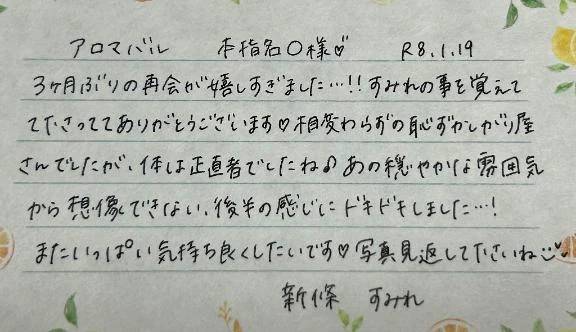 アロマバル 本指名〇様♡ R8.1.19
3ヶ月ぶりの再会が嬉しすぎました…!! すみれの事を覚えて
てださっててありがとうございます♡相変わらずの恥ずかしがり屋
さんでしたが、体は正直者でしたね♪ あの穏やかな雰囲気
から想像できない、後半の感じにドキドキしました…!
またいっぱい気持ち良くしたいです♡写真見返してださいね
新條 すみれ